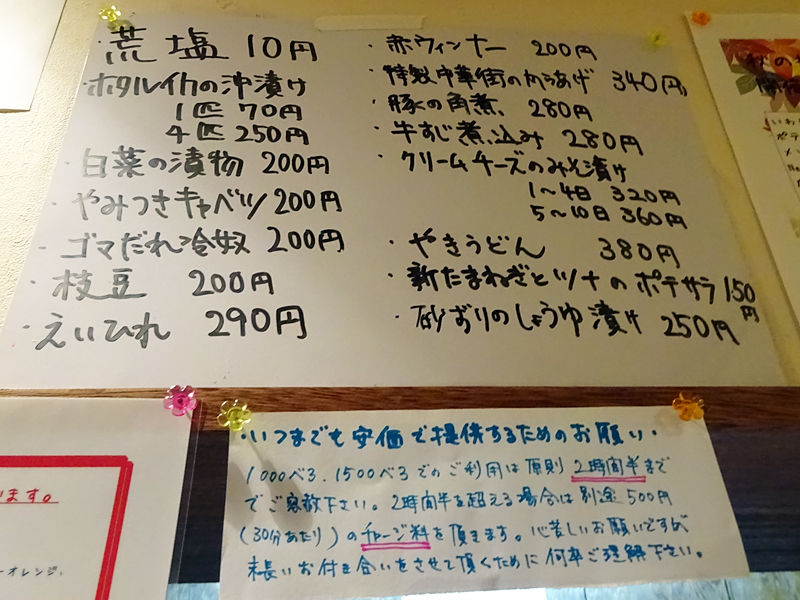 荒塩 10円
・ホタルイカの沖漬け
1匹 70円
4匹 250円
・白菜の漬物 200円
・やみつきキャベツ 200円
・ゴマだれ冷奴 200円
・枝豆 200円
・えいひれ 290円
・赤ウィンナー 200円
・特製中華街のからあげ 340円
・豚の角煮 280円
・牛すじ煮込み 280円
・クリームチーズのみそ漬け
1〜4日 320円
5〜10日 360円
・やきうどん 380円
・新たまねぎとツナのポテサラ 150円
・砂ずりのしょうゆ漬け 250円
・いつまでも安価で提供するためのお願い・
1000べろ、1500べろでのご利用は原則 2時間半まで
でご容赦下さい。2時間半を超える場合は別途500円
(30分あたり)のチャージ料を頂きます。心苦しいお願いですが、
末長いお付き合いをさせて頂くために何卒ご理解下さい。
います。
ーオレンジ、
秋の